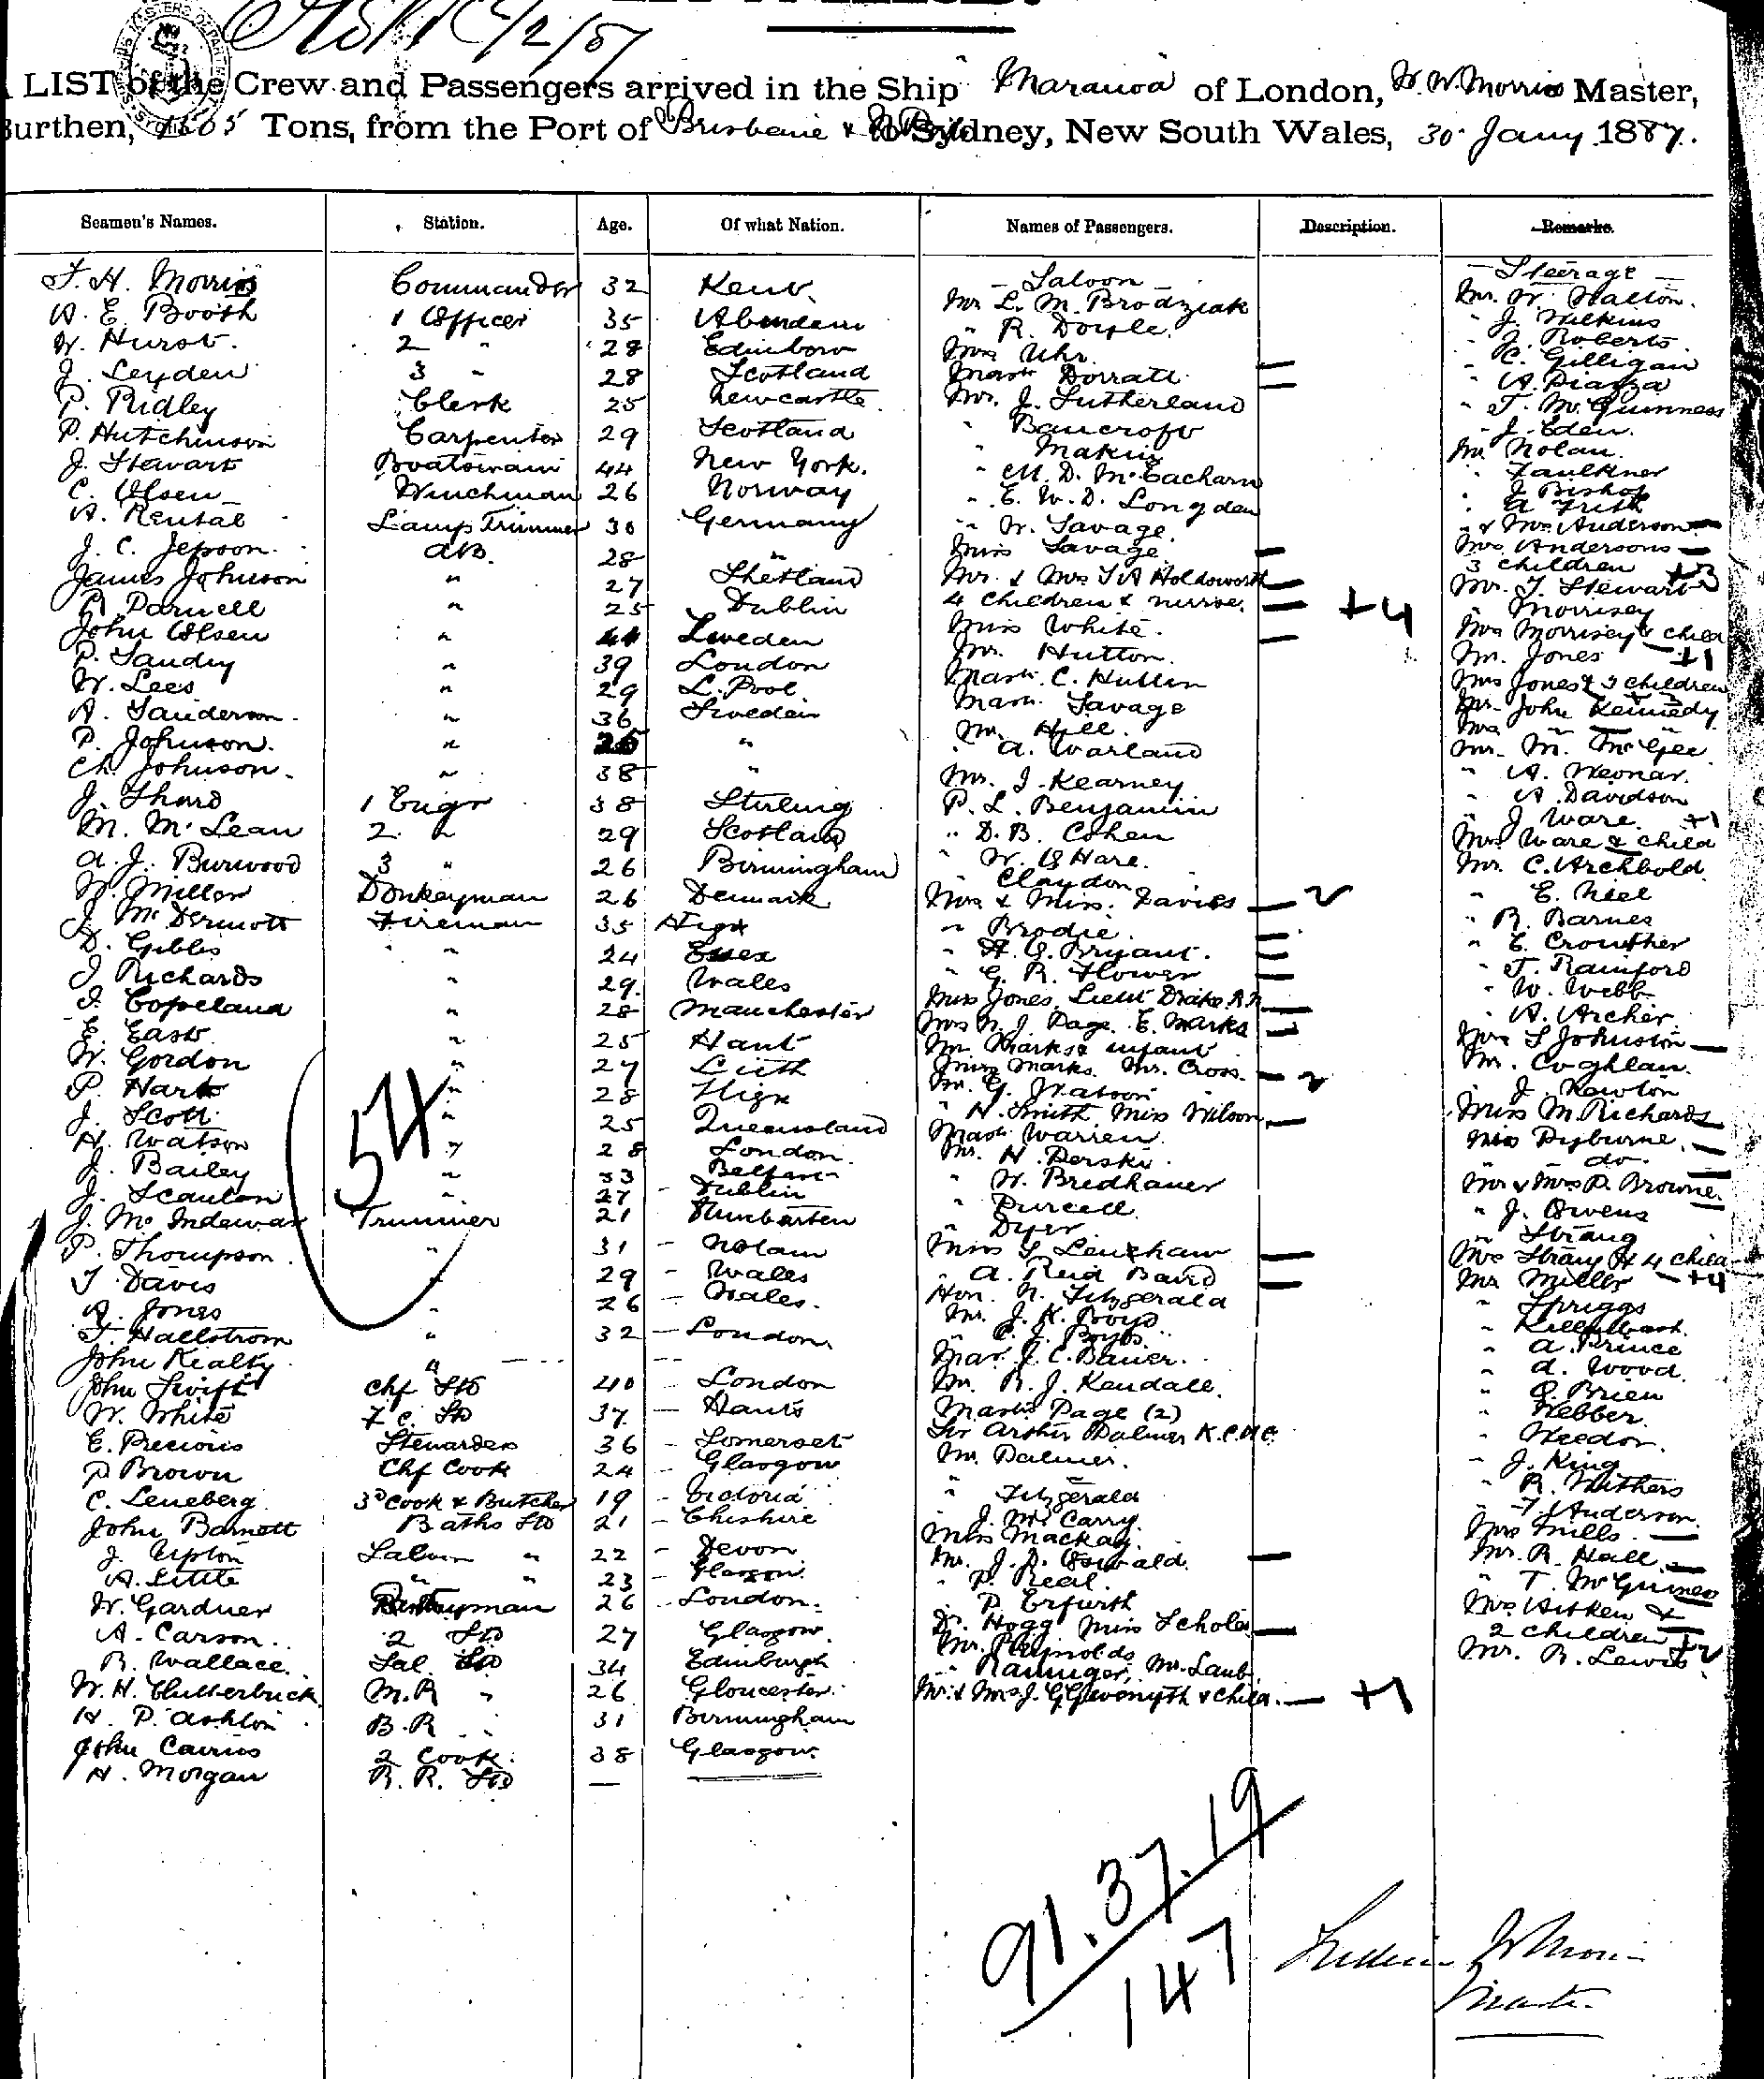 A LIST of the Crew and Passengers arrived in the Ship Maranoa of London, W. W. Morris Master,
Burthen, 1505 Tons, from the Port of Brisbane & to Sydney, New South Wales, 30 Jany 1887.
Seamen's Names. Station. Age. Of what Nation. Names of Passengers. Description. Remarks.
F. H. Morris Commander 32 Kent. Saloon Steerage
A. E. Booth 1 Officer 35 Aberdeen Mr L. M. Brodziak Mr. W. Halton.
W. Hurst. 2 " 28 Edinboro " R. Doyle. " J. Wilkins
J. Leyden 3 " 28 Scotland Mrs Uhr. " J. Roberts.
P. Ridley Clerk 25 Newcastle Mastr Dorratt. " C. Gilligan
P. Hutchinson Carpenter 29 Scotland Mr. J. Sutherland " A. Piazza
J. Stewart Boatswain 44 New York. " Bancroft " T. McGuinness
C. Olsen Winchman 26 Norway " Makin " J. Eden.
A. Rental Lamp Trimmer 30 Germany " M. D. McEacharn Mr. Nolan.
J. C. Jepson. AB. 28 " " E. W. D. Longden " Faulkner
James Johnson " 27 Shetland " W. Savage. " J Bishop
Parnell " 25 Dublin Miss Savage " A Frith
John Olsen " 44 Sweden Mr. & Mrs T A Holdsworth " & Mrs Anderson
P. Sandry " 39 London 4 children & nurse. +4 Mrs Andersons
W. Lees " 29 L. Pool Miss White. 3 children +3
A. Sanderson. " 36 Sweden Mr. Hutton. Mr. T. Stewart
P. Johnson. " 26 " Mastr. C. Hutton " Morrisey
Ch. Johnson. " 38 " Mastr. Savage Mrs Morrisey & child
J. Shard 1 Engr 38 Stirling Mr. Hill. Mr. Jones +1
M. McLean 2 " 29 Scotland " A. Warland Mrs Jones & 3 children
A. J. Burwood 3 " 26 Birmingham Mr. J. Kearney Mr. John Kennedy
W. Miller Donkeyman 26 Denmark P. L. Benjamin Mrs " "
J. McDermott Fireman 35 " D. B. Cohen Mr. M. McGee
D. Gibbs " 24 Essex " W. O'Hare. " A.
J Richards " 29. Wales " Claydon " A. Davidson
Copeland " 28 Manchester Mrs & Miss. Davies " J. Ware. +1
E. East " 25 Hant " Brodie. Mrs Ware & child
W. Gordon " 27 Leith " Bryant. Mr. C. Archbold.
P. Hart " 28 " G. R. Flower " E. Neel
J. Scott " 25 Queensland Miss Jones. Lieut Drake R.N. " R. Barnes
H. Watson " 28 London. Mrs N. J. Page. E. Marks " E. Crowther
J. Bailey " 33 Belfast Mr. Marks & infant " T. Rainford
J. Scanlan " 27 Dublin Miss Marks. Mr. Cross. " W. Webb
J. McIndewar Trimmer 21 Dumbarton Mr. G. Watson " A. Archer
P. Thompson " 31 " H. Smith Miss Wilson Mrs S Johnston
T. Davis " 29 Wales Mastr Warren Mr. Coghlan.
A. Jones " 26 Wales. Mr. H. Perske. " J. Newton
T. Hallstrom " 32 London. " W. Bredhauer Miss M. Richards
John Kealty " " Purcell Miss Pyburne.
John Swift Chf Std 40 London " Dyer do.
W. White F. C. Std 37 Hants Miss Mr & Mrs P. Browne
E. Precious Stewardess 36 Somerset " A. Reid Baird " J. Owens
P Brown Chf Cook 24 Glasgow Hon. N. Fitzgerald " Strang
C. Leneberg 3d Cook & Butcher 19 Victoria Mr. J. K. Boyd Mrs Strang & 4 child
John Barnett Baths Std 21 Cheshire " Boyds. Mr Miller +4
J. Upton Saloon " 22 Devon J. C. Bauer. " Spriggs
A. Little " " 23 Glasgow Mr. R. J. Kendall. "
W. Gardner Pantryman 26 London. Mastrs Page (2) " A. Prince
A. Carson. 2 Std 27 Glasgow Sir Arthur Palmer K.C.M.G. " A. Wood.
R. Wallace. Sal. Std 34 Edinburgh Mr. Palmer. " O'Brien
W. H. Clutterbuck M.R " 26 Gloucester. " Fitzgerald " Webber.
H. P. Ashton B.R " 31 Birmingham " J. McCarry. " Weedon.
John Cairns 2 Cook. 38 Glasgow. Miss Mackay. " J. King
H. Morgan R. R. Std — Mr. J. D. Oswald. " R. Withers
" P. Real. " T. Anderson.
" P. Erfurth Mrs Mills.
Dr. Hogg Miss Scholes Mr. R. Hall
Mr. Reynolds " T. McGuiness
" Ranniger, Mr. Laub. Mrs Aitken &
Mr. & Mrs J. G. & child. +1 2 children +2
Mr. R. Lewis
54
91.37.19
147